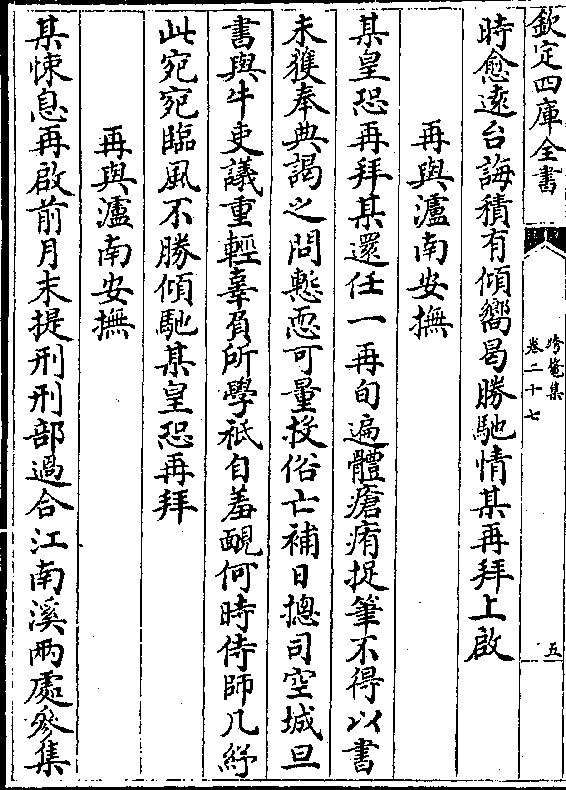 欽定四庫全書
卷二十七
五
時愈遠台誨積有傾嚮曷勝馳情某再拜上啟
再與瀘南安撫
某皇恐再拜某還任一再旬遍體瘡痏捉筆不得以書
未獲奉典謁之問慙恧可量投俗亡補日摠司空城旦
書與牛吏議重輕辜負所學袛自羞覼何時侍師几紓
此宛宛臨風不勝傾馳某皇恐再拜
再與瀘南安撫
某悚息再啟前月末提刑刑部過合江南溪兩處參集